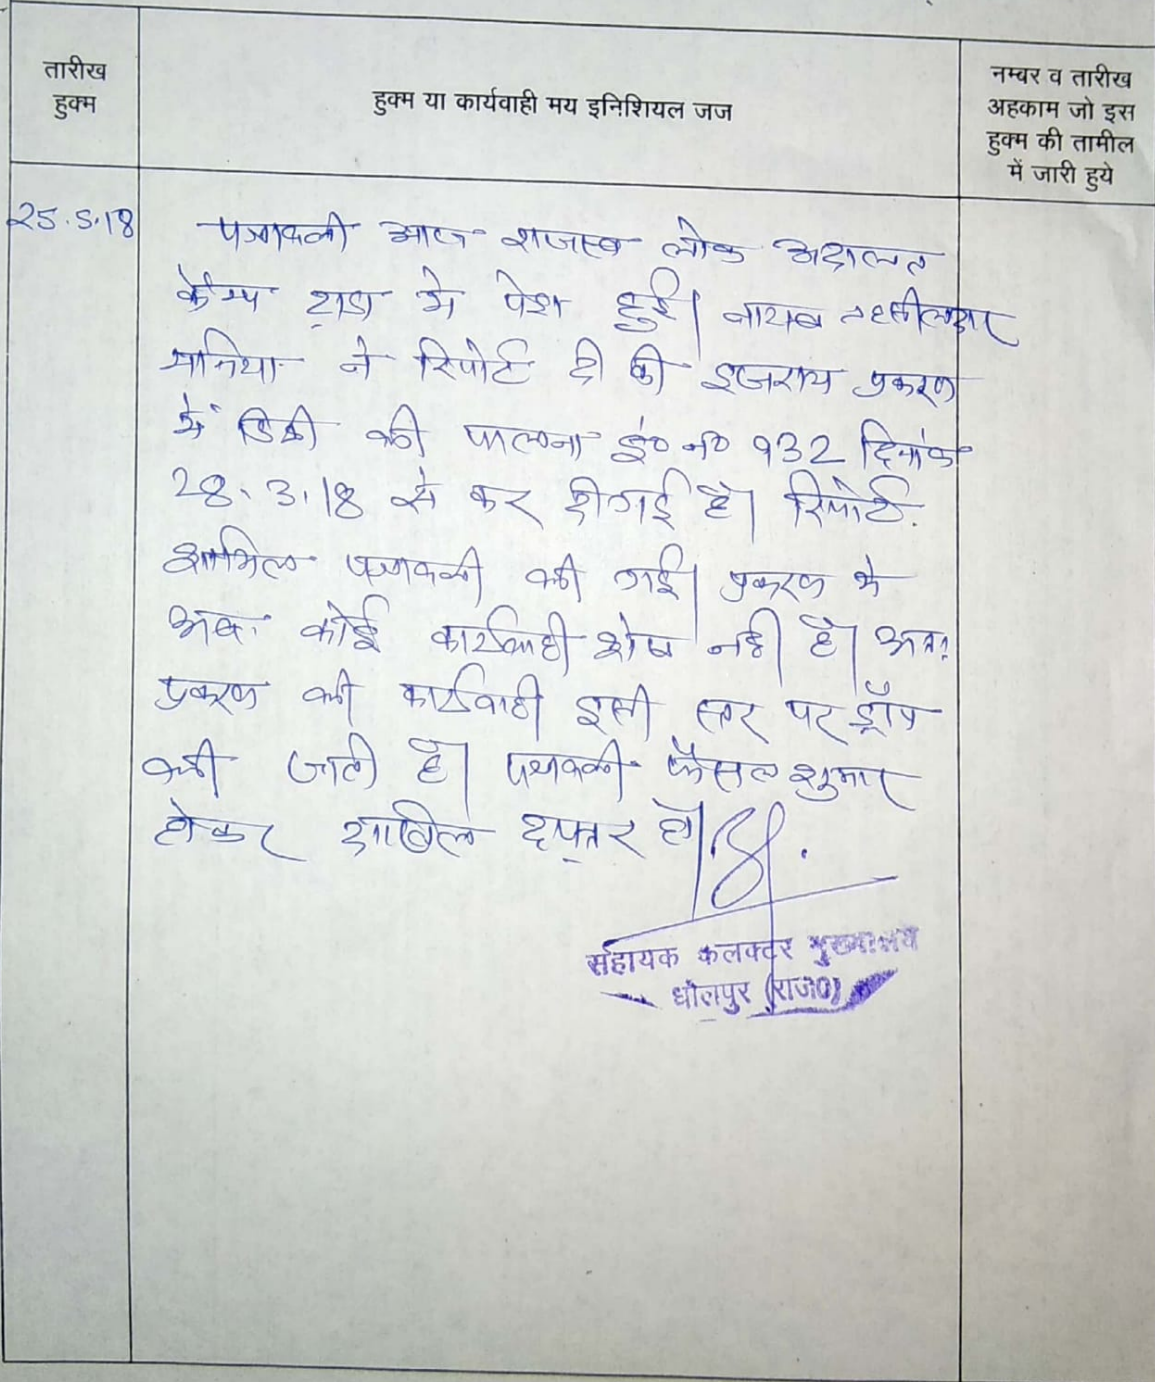 तारीख
हुक्म
हुक्म या कार्यवाही मय इनिशियल जज
नम्बर व तारीख
अहकाम जो इस
हुक्म की तामील
में जारी हुये
25.5.18
पत्रावली आज राजस्व लोक अदालत
कैम्प में पेश हुई। नायब तहसीलदार
मनियां ने रिपोर्ट दी की इजराय प्रकरण
में डिक्री की पालना इं० नं० 932 दिनांक
28.3.18 से कर दी गई है। रिपोर्ट
शामिल पत्रावली की गई। प्रकरण में
अब कोई कार्यवाही शेष नहीं है। अतः
प्रकरण की कार्यवाही इसी स्तर पर ड्रॉप
की जाती है। पत्रावली फैसल शुमार
होकर दाखिल दफ्तर हो।
सहायक कलक्टर मुख्यालय
धौलपुर (राज०)